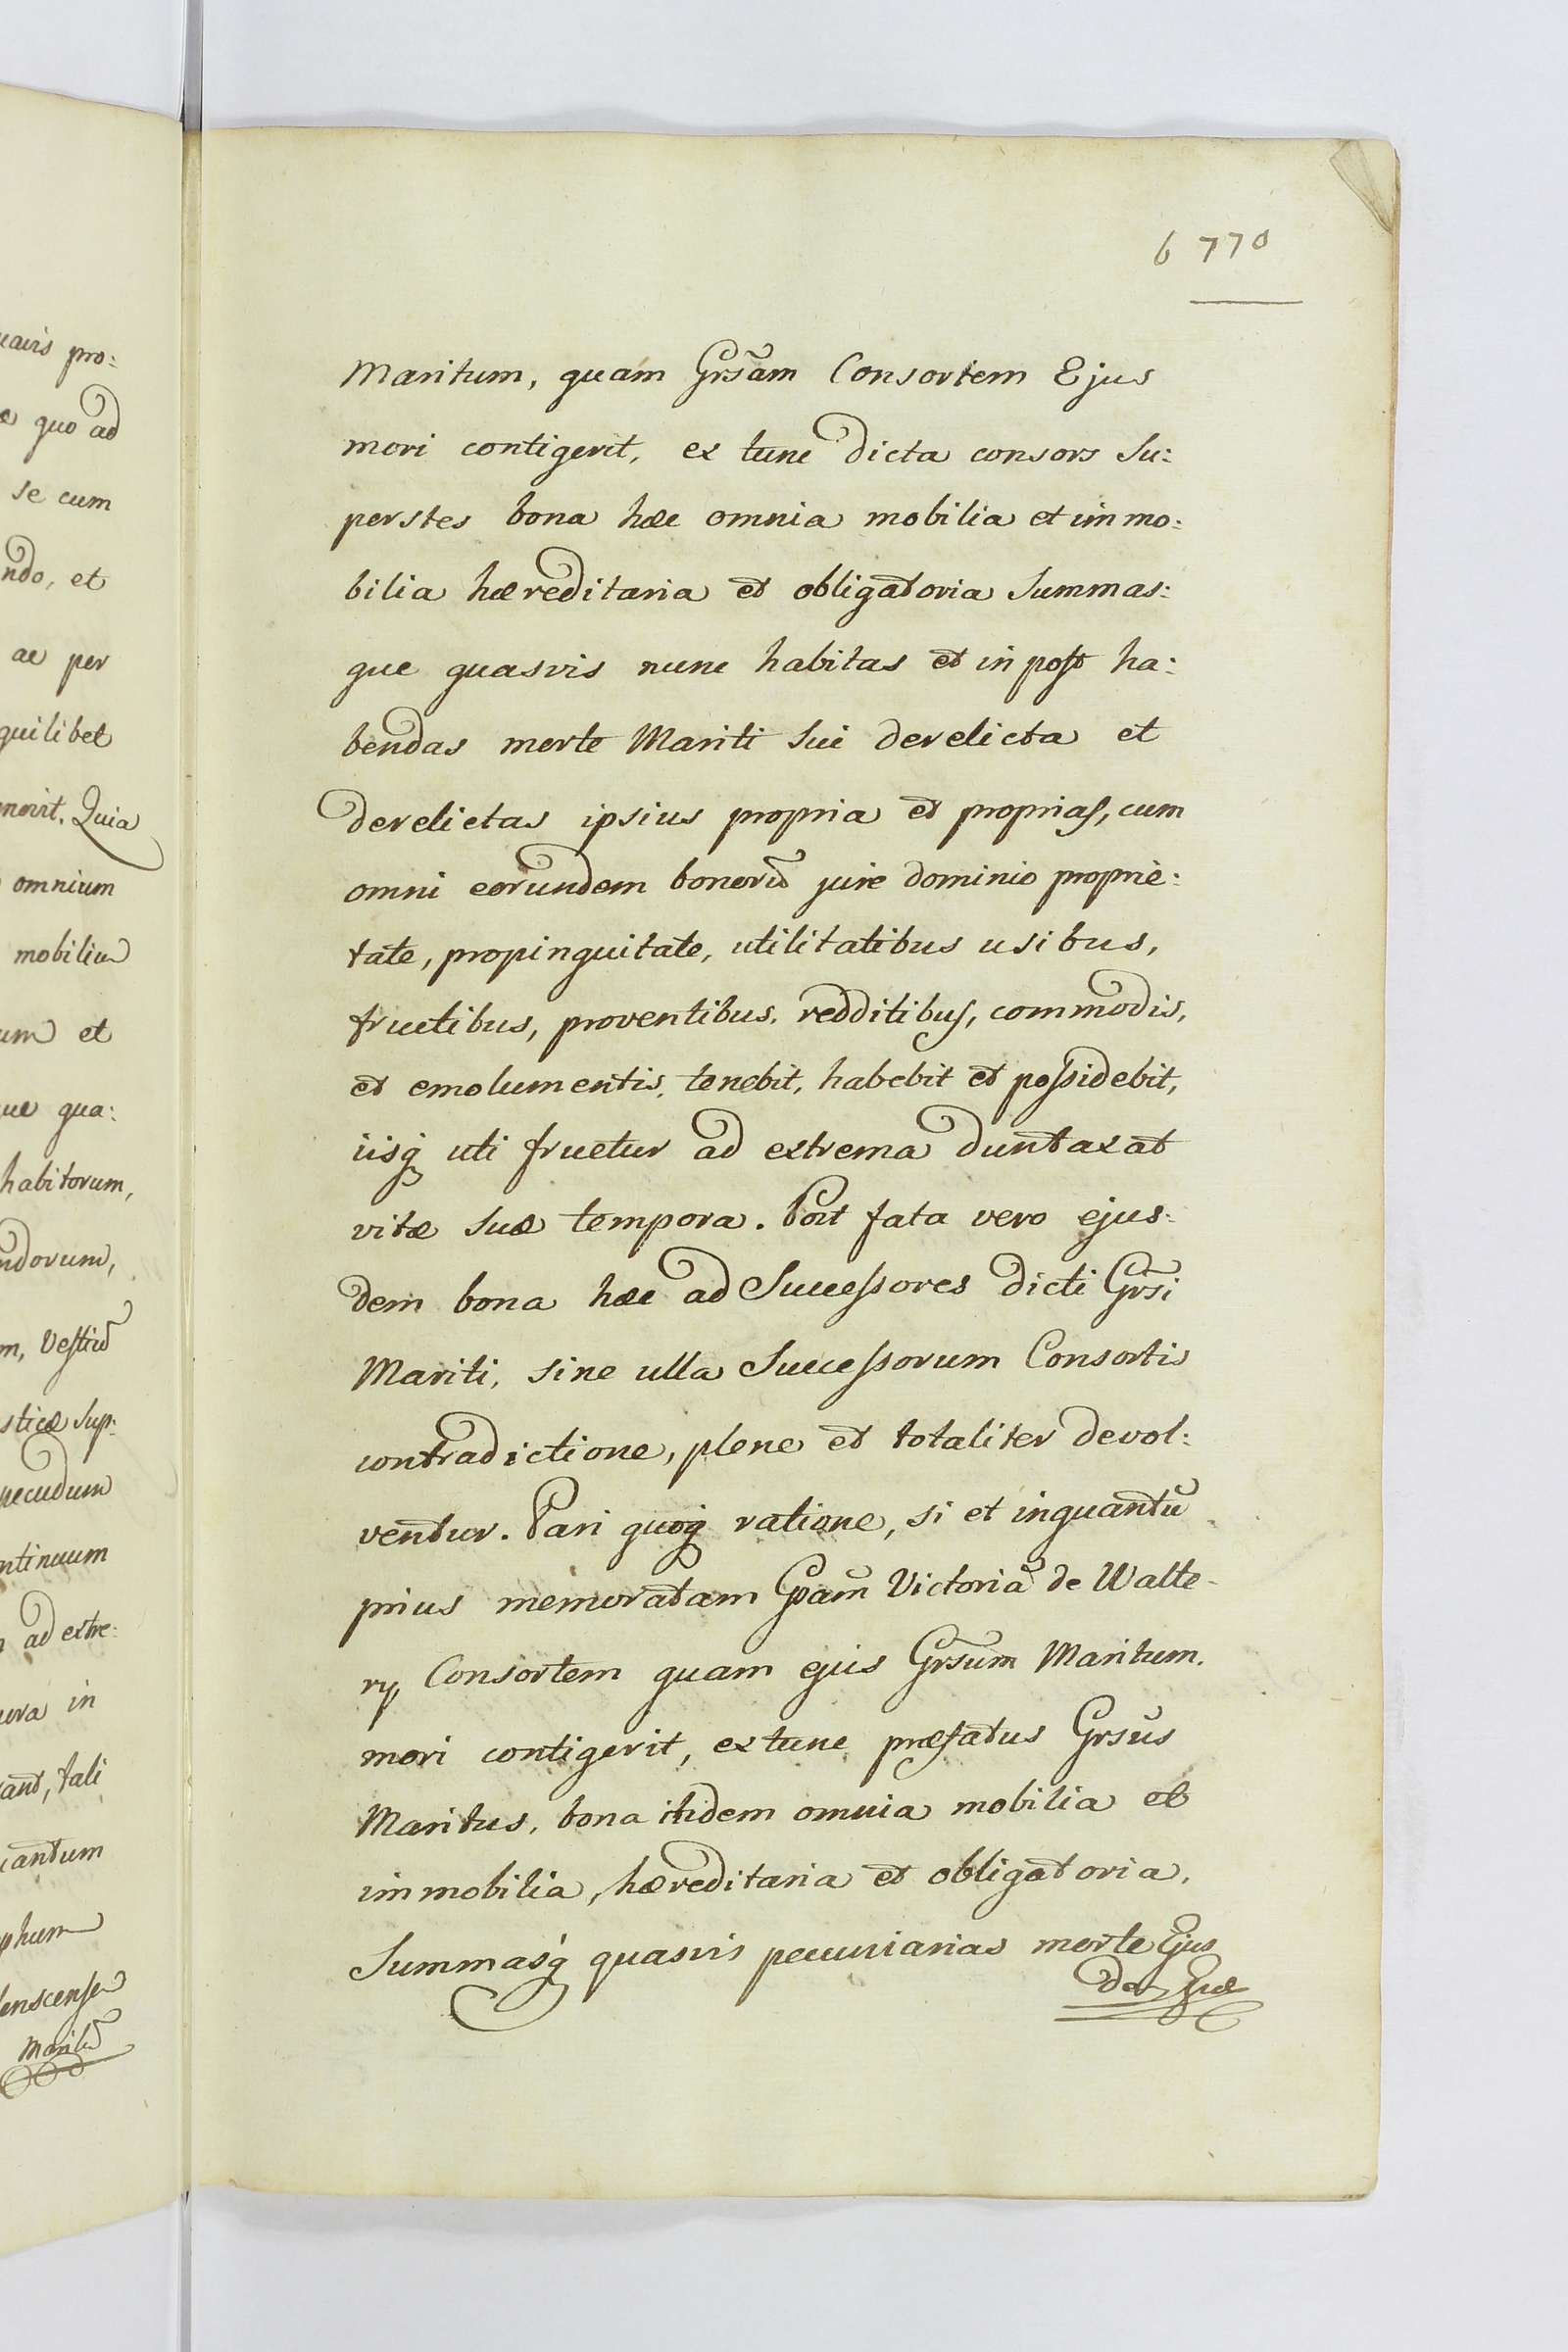 uavis pro:
quo ad
se cum
ndo, et
ac per
quilibet
Quia
omnium
mobiliu
um et
ue qua:
habitorum,
ndorum,
m, Vestiu
sticæ Sup:
pecudum
ntinuum
ad extre:
in
tali
antum
phum
Maritu
6 770
Maritum, quam Grsam Consortem Ejus
mori contigerit, ex tunc dicta consors Su:
perstes bona hæc omnia mobilia et immo:
bilia hæreditaria et obligatoria Summas:
que quasvis nunc habitas et in post ha:
bendas morte Mariti sui derelicta et
derelictas ipsius propria et proprias, cum
omni eorundem bonoru jure dominio proprie:
tate, propinquitate, utilitatibus usibus,
fructibus, proventibus, redditibus, commodis,
et emolumentis, tenebit, habebit et possidebit,
iisq uti fruetur ad extrema duntaxat
vitæ suæ tempora. Post fata vero ejus:
dem bona hæc ad Successores dicti Grsi
Mariti, sine ulla Successorum Consortis
contradictione, plene et totaliter devol:
ventur. Pari quoq ratione, si et inquantu
prius memoratam Gpam Victoria de Walte-
ry Consortem quam ejus Grsum Maritum.
mori contigerit, ex tunc præfatus Grsus
Maritus, bona itidem omnia mobilia et
immobilia, hæreditaria et obligatoria,
Summasq quasvis pecuniarias morte Ejus